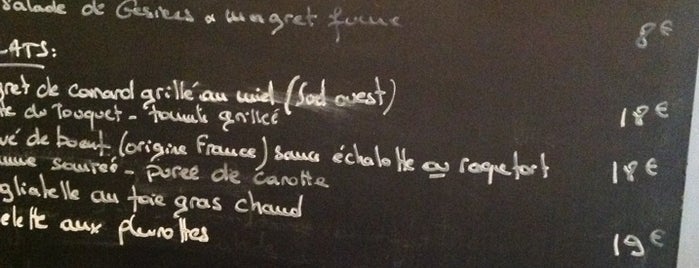 Salade de Gésiers & magret fumé 8€
LATS:
gret de canard grillé au miel (Sud ouest)
te du Touquet - tomate grillée 18€
vé de boeuf (origine France) sauce échalotte ou roquefort
mme sautée - purée de carotte 18€
gliatelle au foie gras chaud
elette aux pleurottes 19€